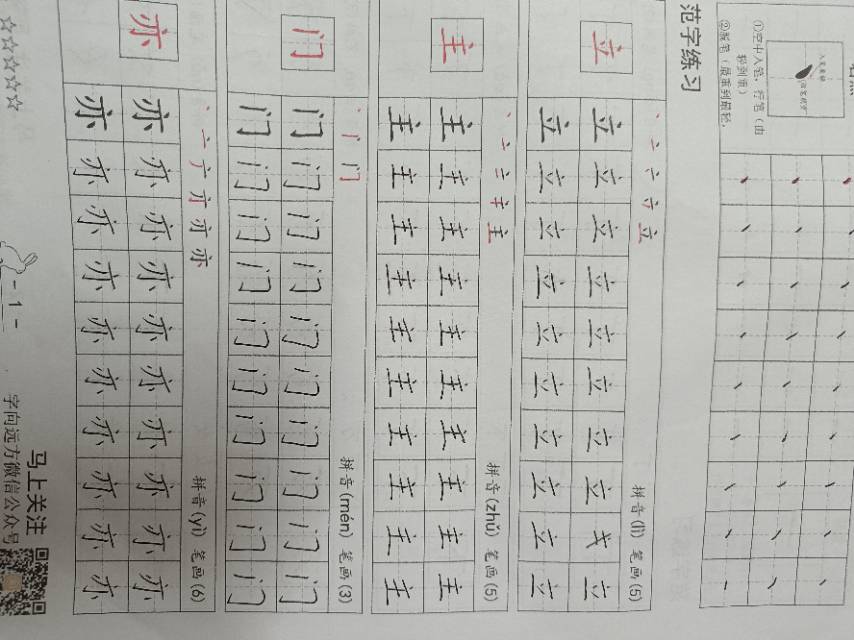 ①空中入笔，行笔（由
轻到重）
②顿笔（最重到最轻，
范字练习
立 拼音(lì) 笔画(5)
立立立立立立立立立
立立立立立立立立立立
主 拼音(zhǔ) 笔画(5)
主主主主主主主主主主
主主主主主主主主主主
门 拼音(mén) 笔画(3)
门门门门门门门门门门
门门门门门门门门门门
亦 拼音(yì) 笔画(6)
亦亦亦亦亦亦亦亦亦亦
亦亦亦亦亦亦亦亦亦亦
☆☆☆☆☆
- 1 -
马上关注
字向远方微信公众号